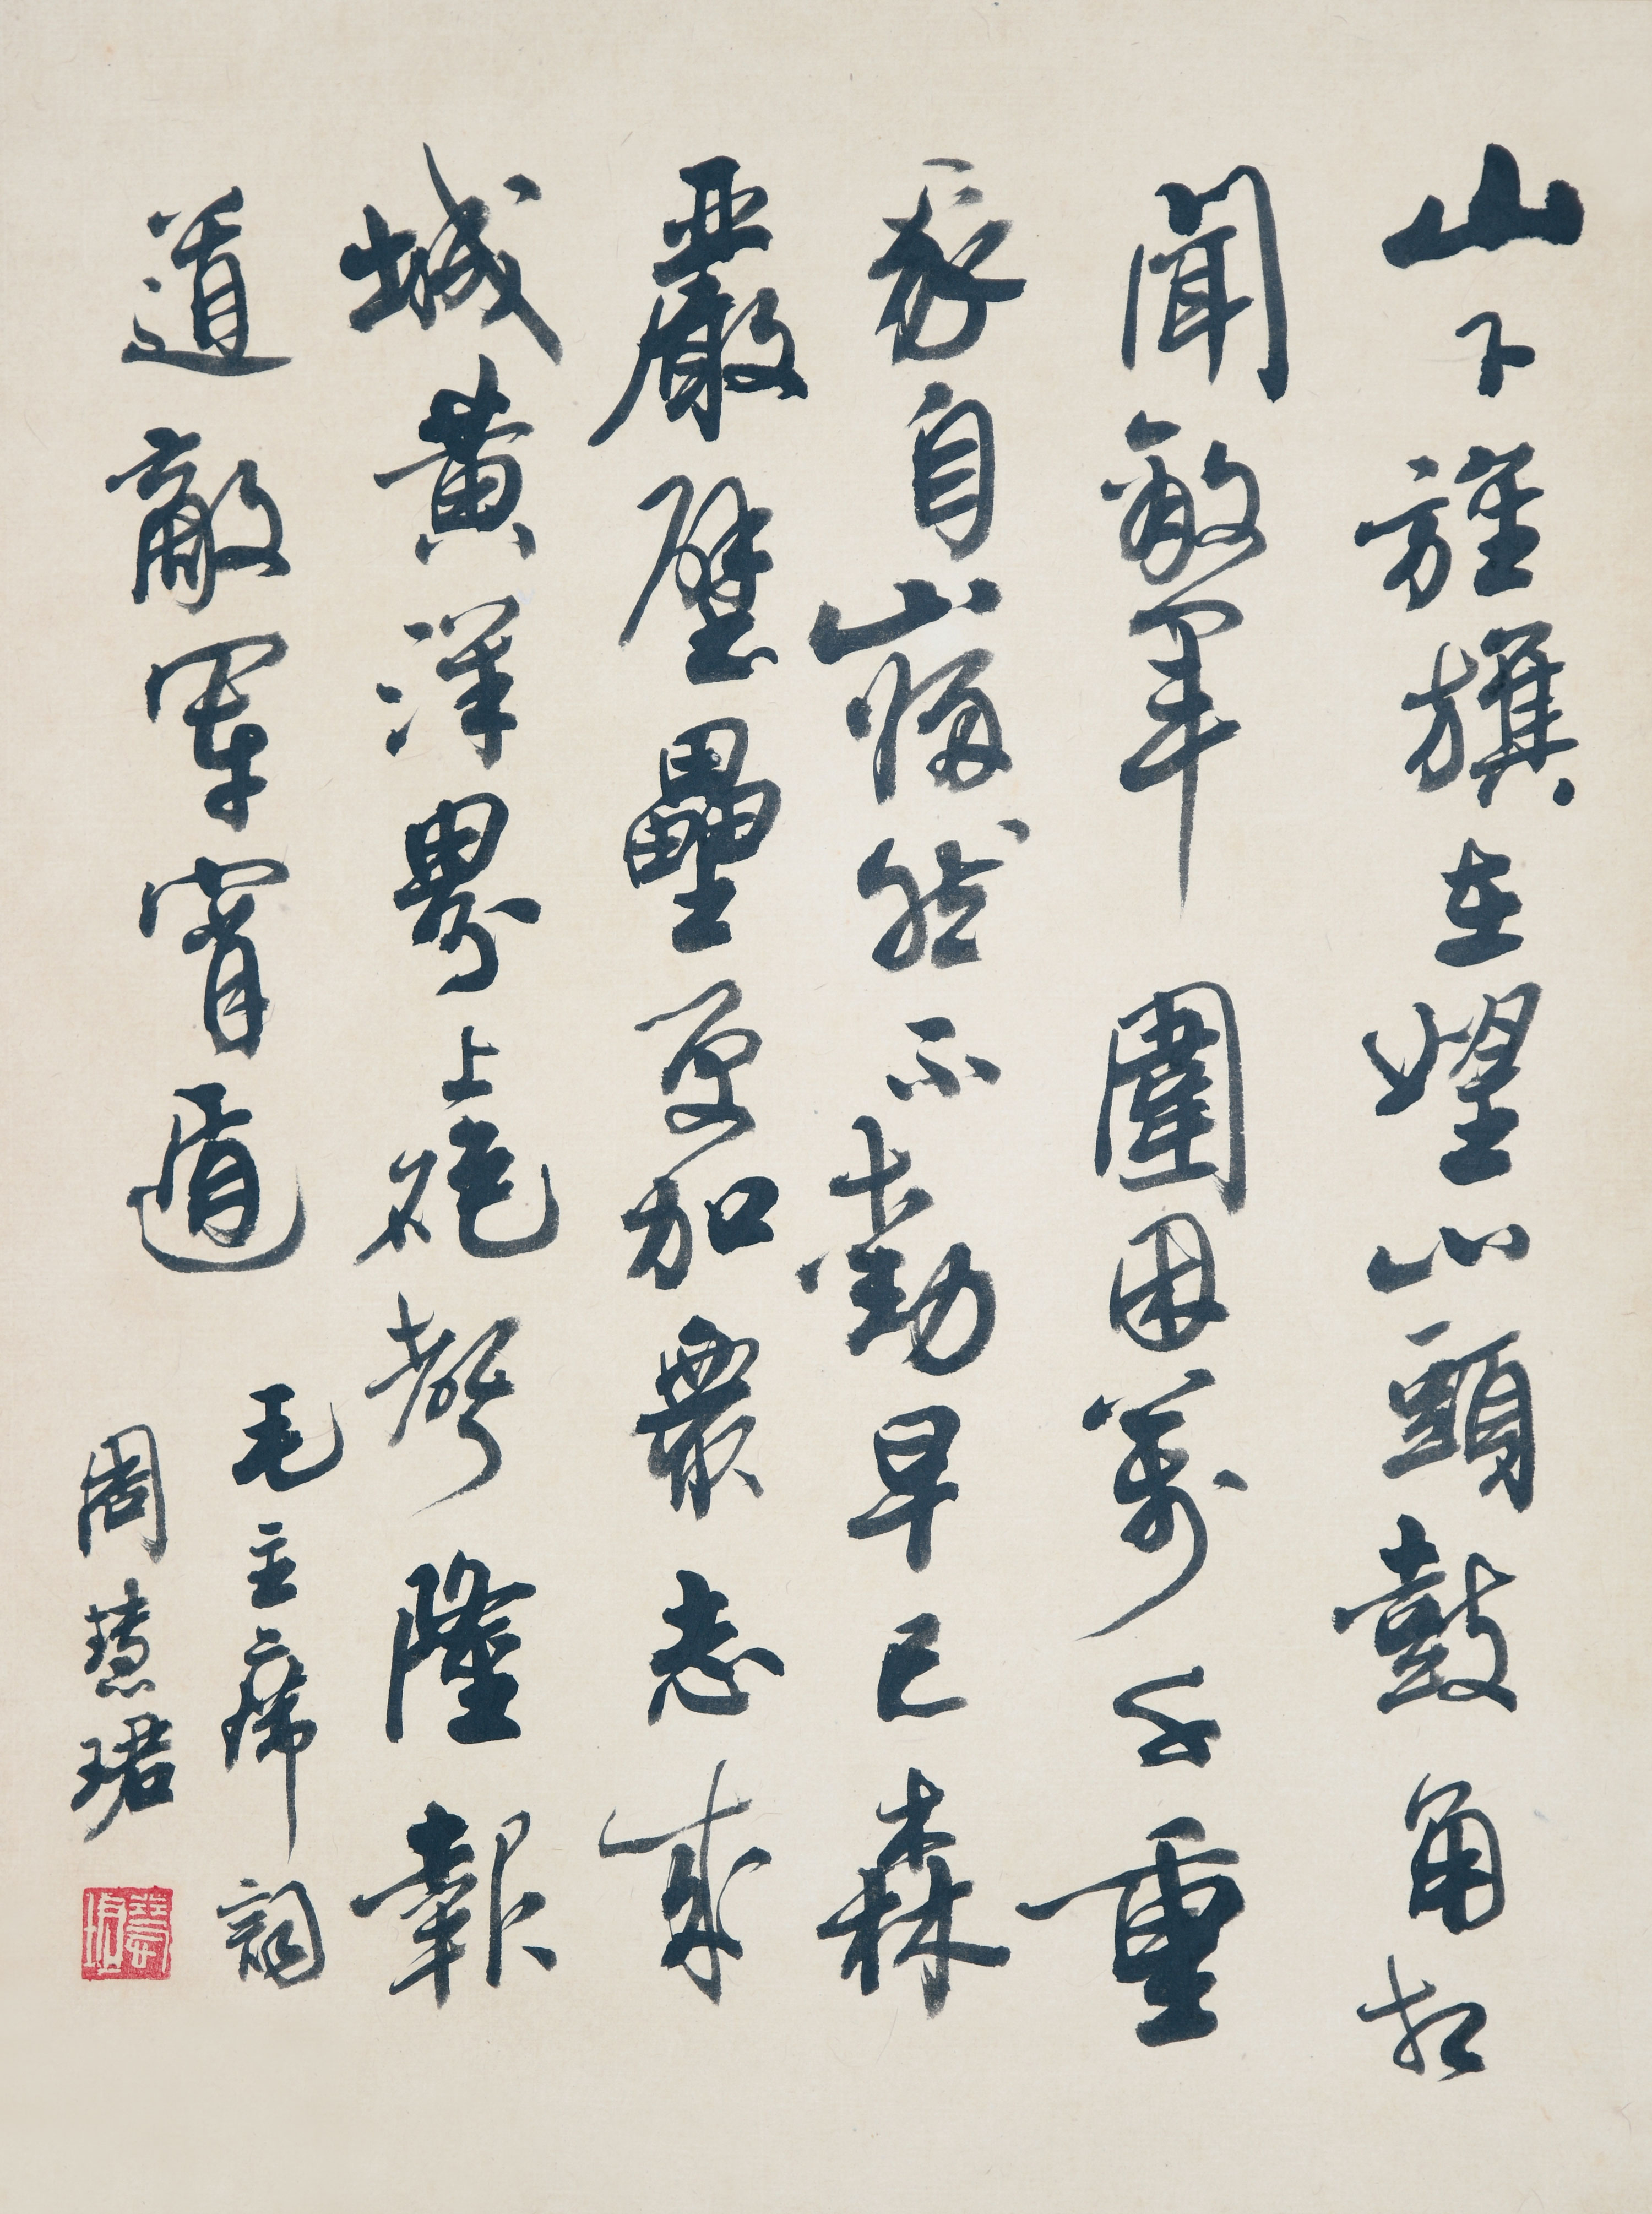 山下旌旗在望山頭鼓角相
聞敵軍圍困萬千重
我自巋然不動早已森
嚴壁壘更加衆志成
城黃洋界上炮聲隆報
道敵軍宵遁
毛主席詞
周慧珺